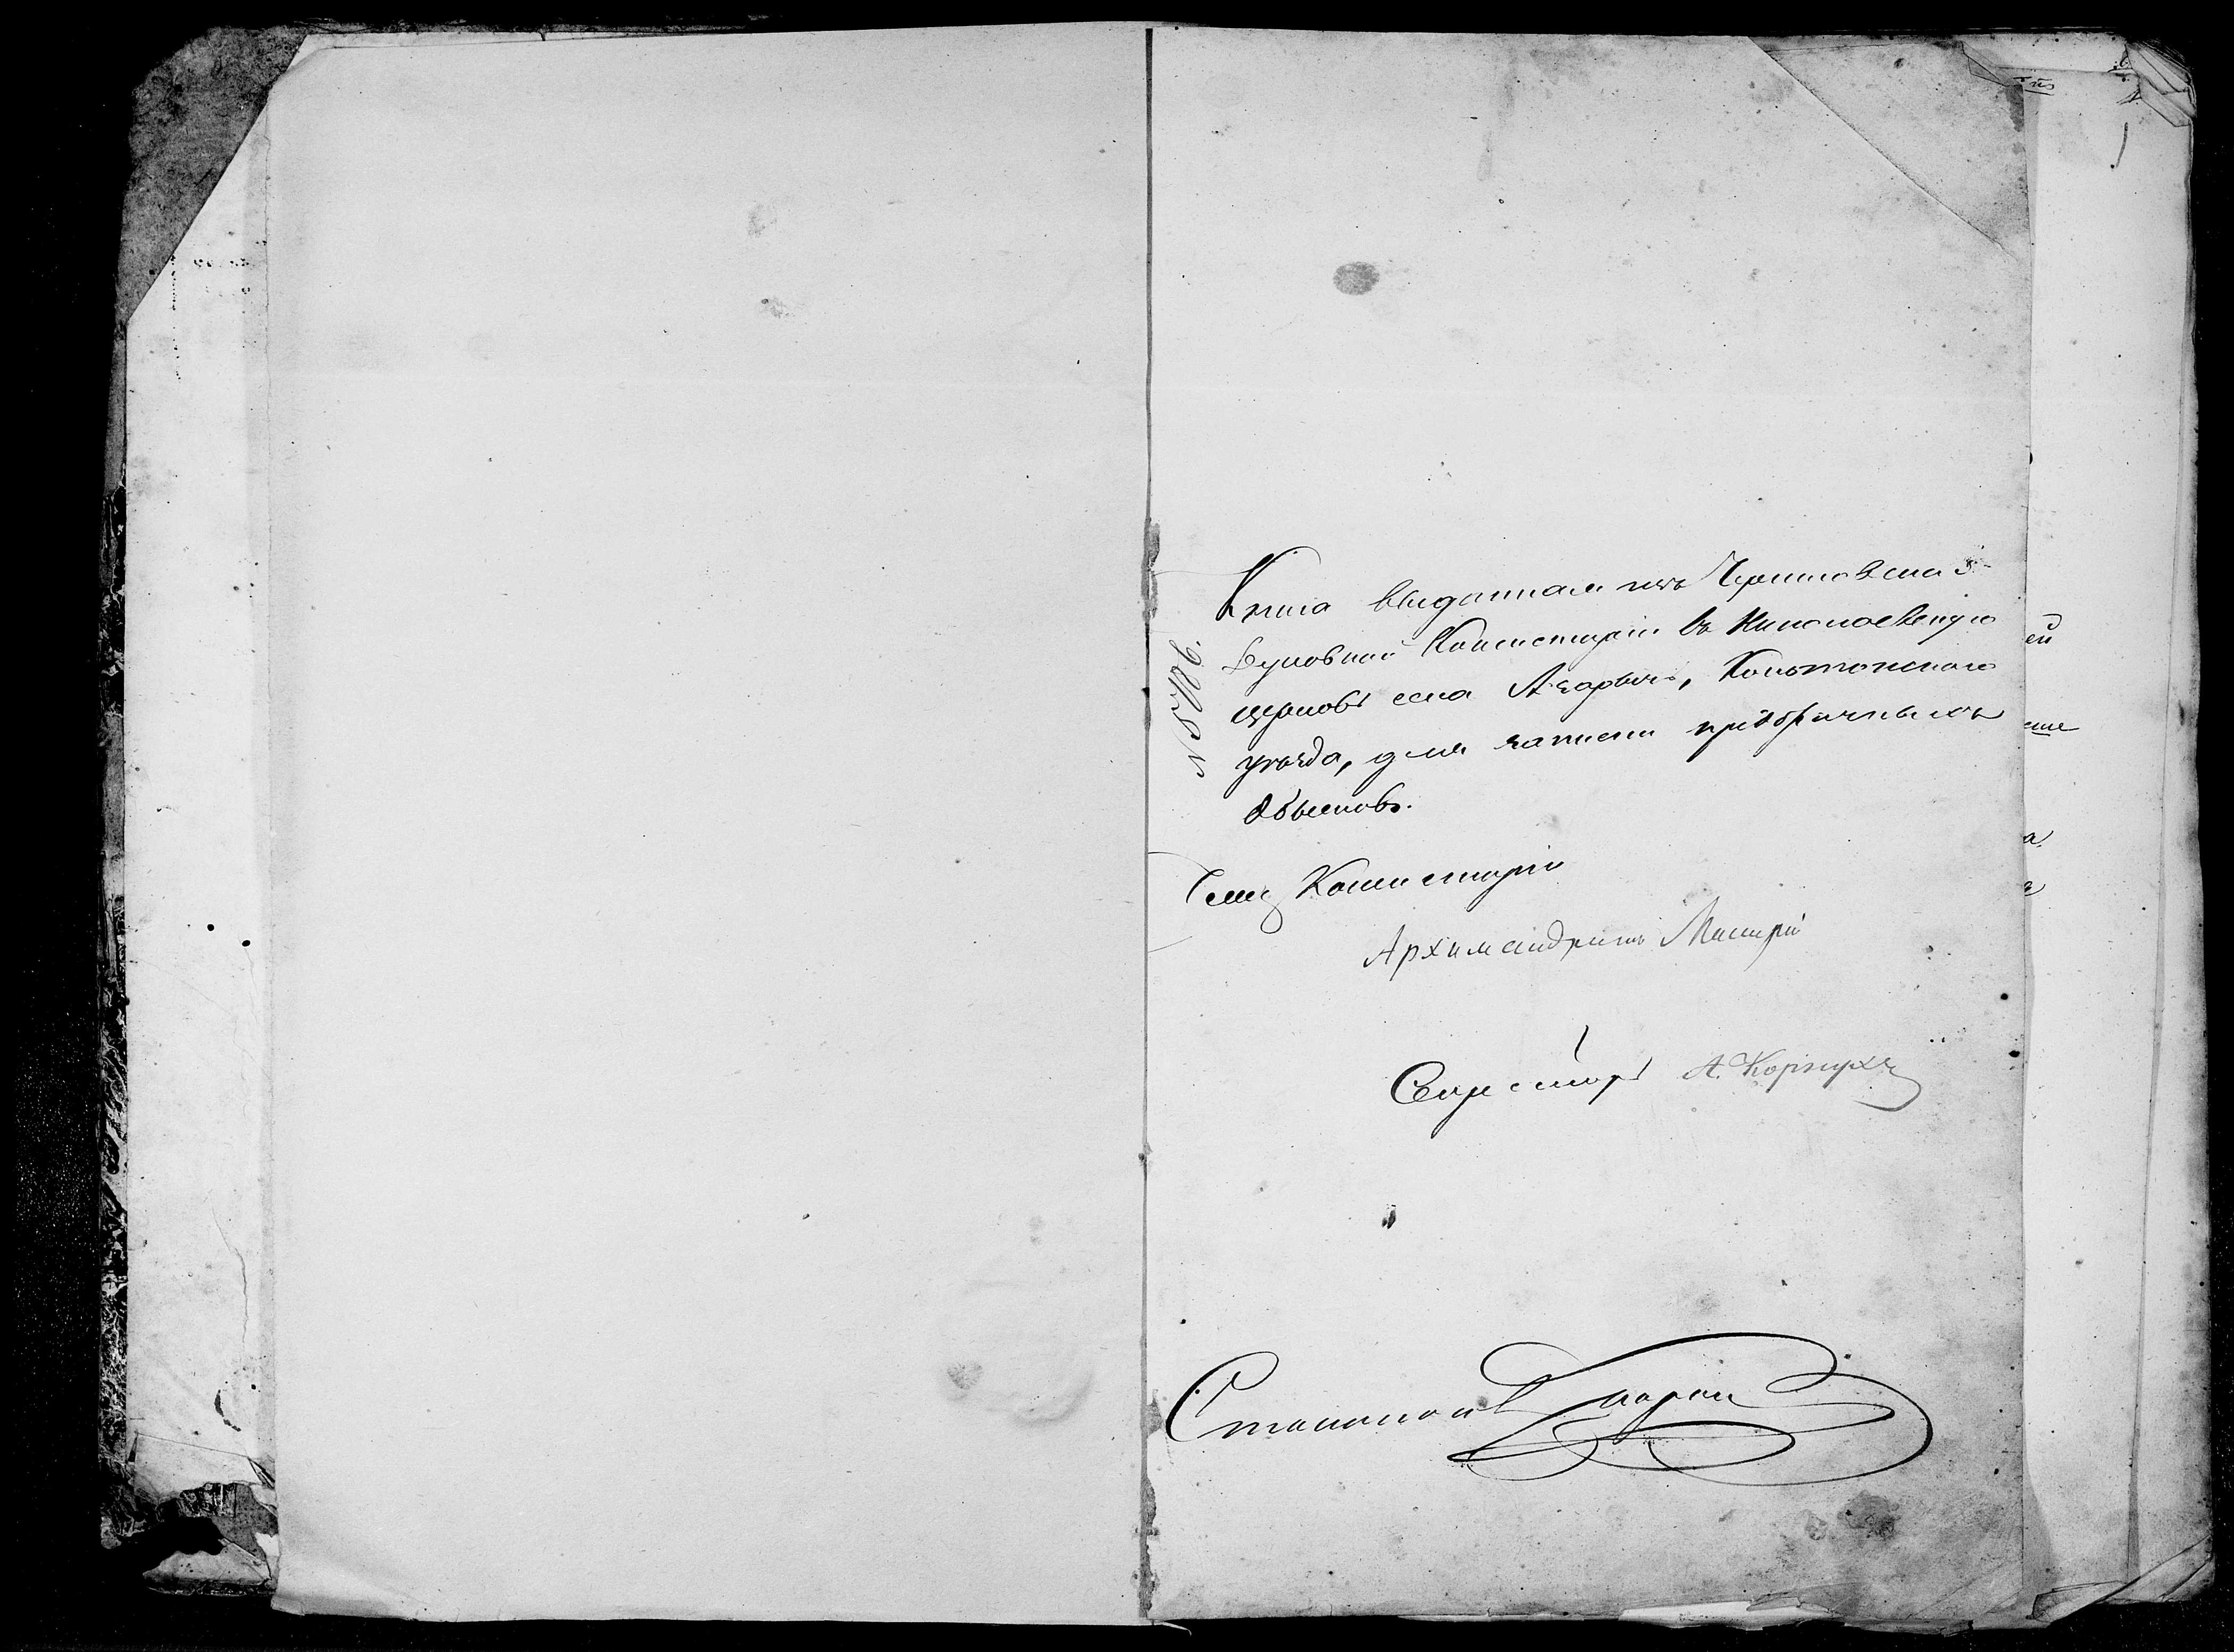 № 5786.
Книга выданная изъ Черниговской
Духовной Консисторіи въ Николаевскую
церковь села Азаричъ, Конотопскаго
уѣзда, для записи предбрачныхъ
обысковъ.
Членъ Консисторіи
Архимандритъ
Секретарь А.
Столоначальникъ